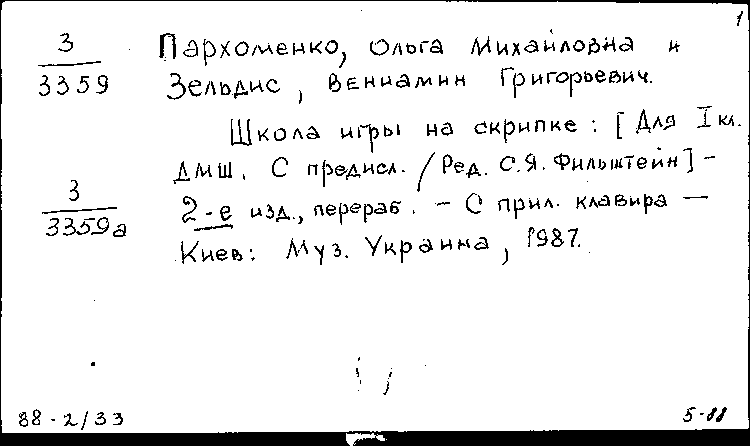 1
3
3359
Пархоменко, Ольга Михайловна и
Зельдис, Вениамин Григорьевич.
Школа игры на скрипке: [Для I кл.
ДМШ. С предисл. / Ред. С.Я. Фильштейн] -
3
3359а
2-е изд., перераб. - С прил. клавира —
Киев: Муз. Украина, 1987.
88-2/33
5-88